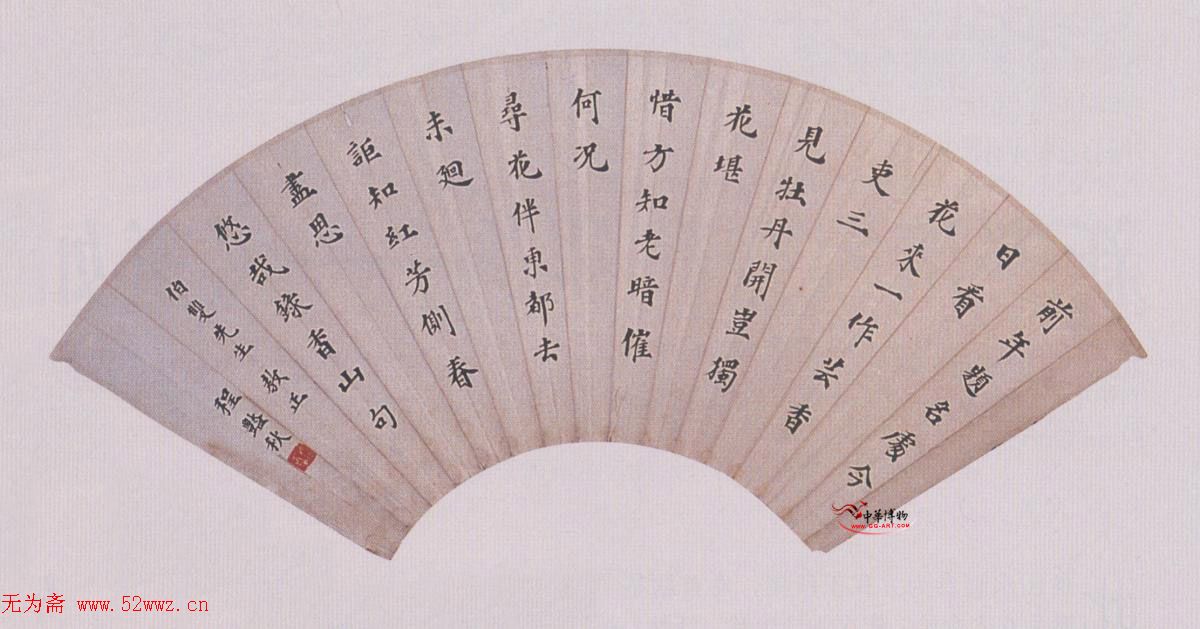 前年題名處今
日看
花来一作芸香
吏三
見牡丹開豈獨
花堪
惜方知老暗催
何况
尋花伴東都去
未廻
詎知紅芳側春
盡思
悠哉錄香山句
伯雙先生教正
程豔秋
中華博物
WWW.GG-ART.COM
无为斋 www.52wwz.cn